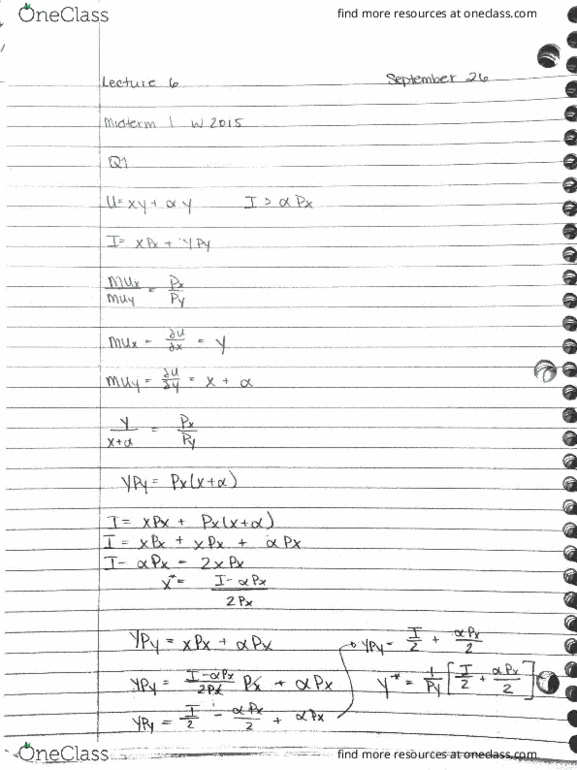 OneClass find more resources at oneclass.com
Lecture 6 September 26
Midterm 1 W 2015
Q1
U = xy + αy I > αPx
I = xPx + YPy
MUx/MUy = Px/Py
MUx = ∂U/∂x = y
MUy = ∂U/∂y = x + α
y/(x+α) = Px/Py
YPy = Px(x+α)
I = xPx + Px(x+α)
I = xPx + xPx + αPx
I - αPx = 2xPx
x* = (I - αPx)/2Px
YPy = xPx + αPx
YPy = (I-αPx)/2Px Px + αPx
YPy = I/2 - αPx/2 + αPx
YPy = I/2 + αPx/2
Y* = 1/Py [I/2 + αPx/2]
OneClass find more resources at oneclass.com